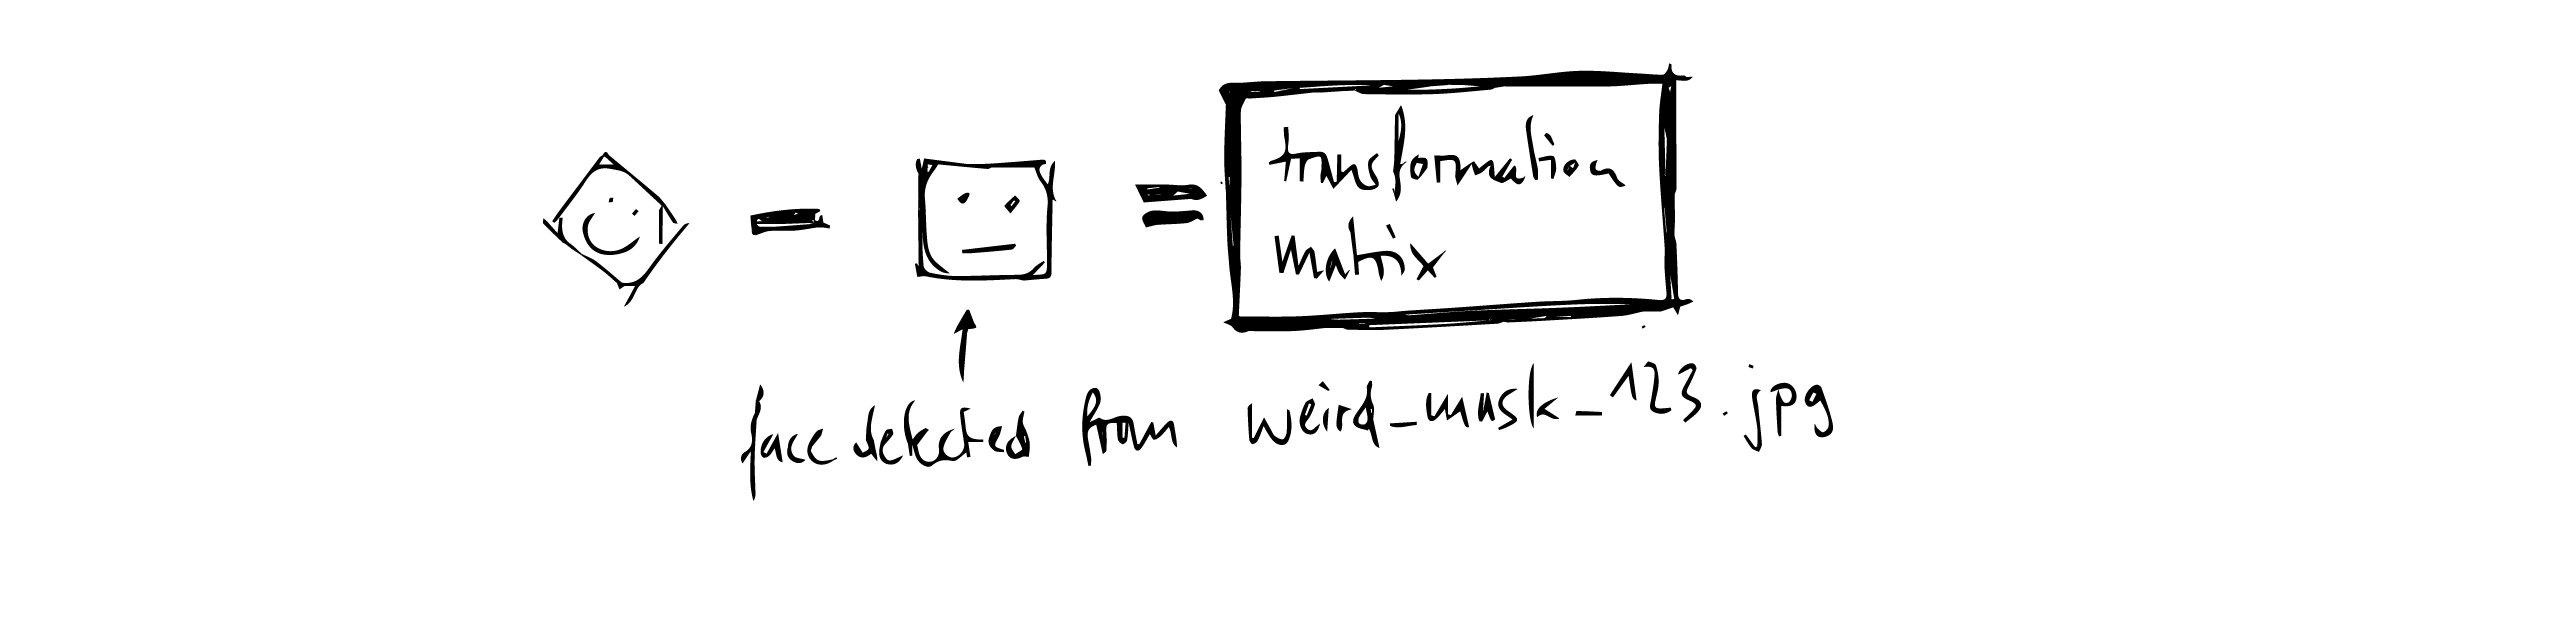 transformation
matrix
face detected from weird_mask_123.jpg